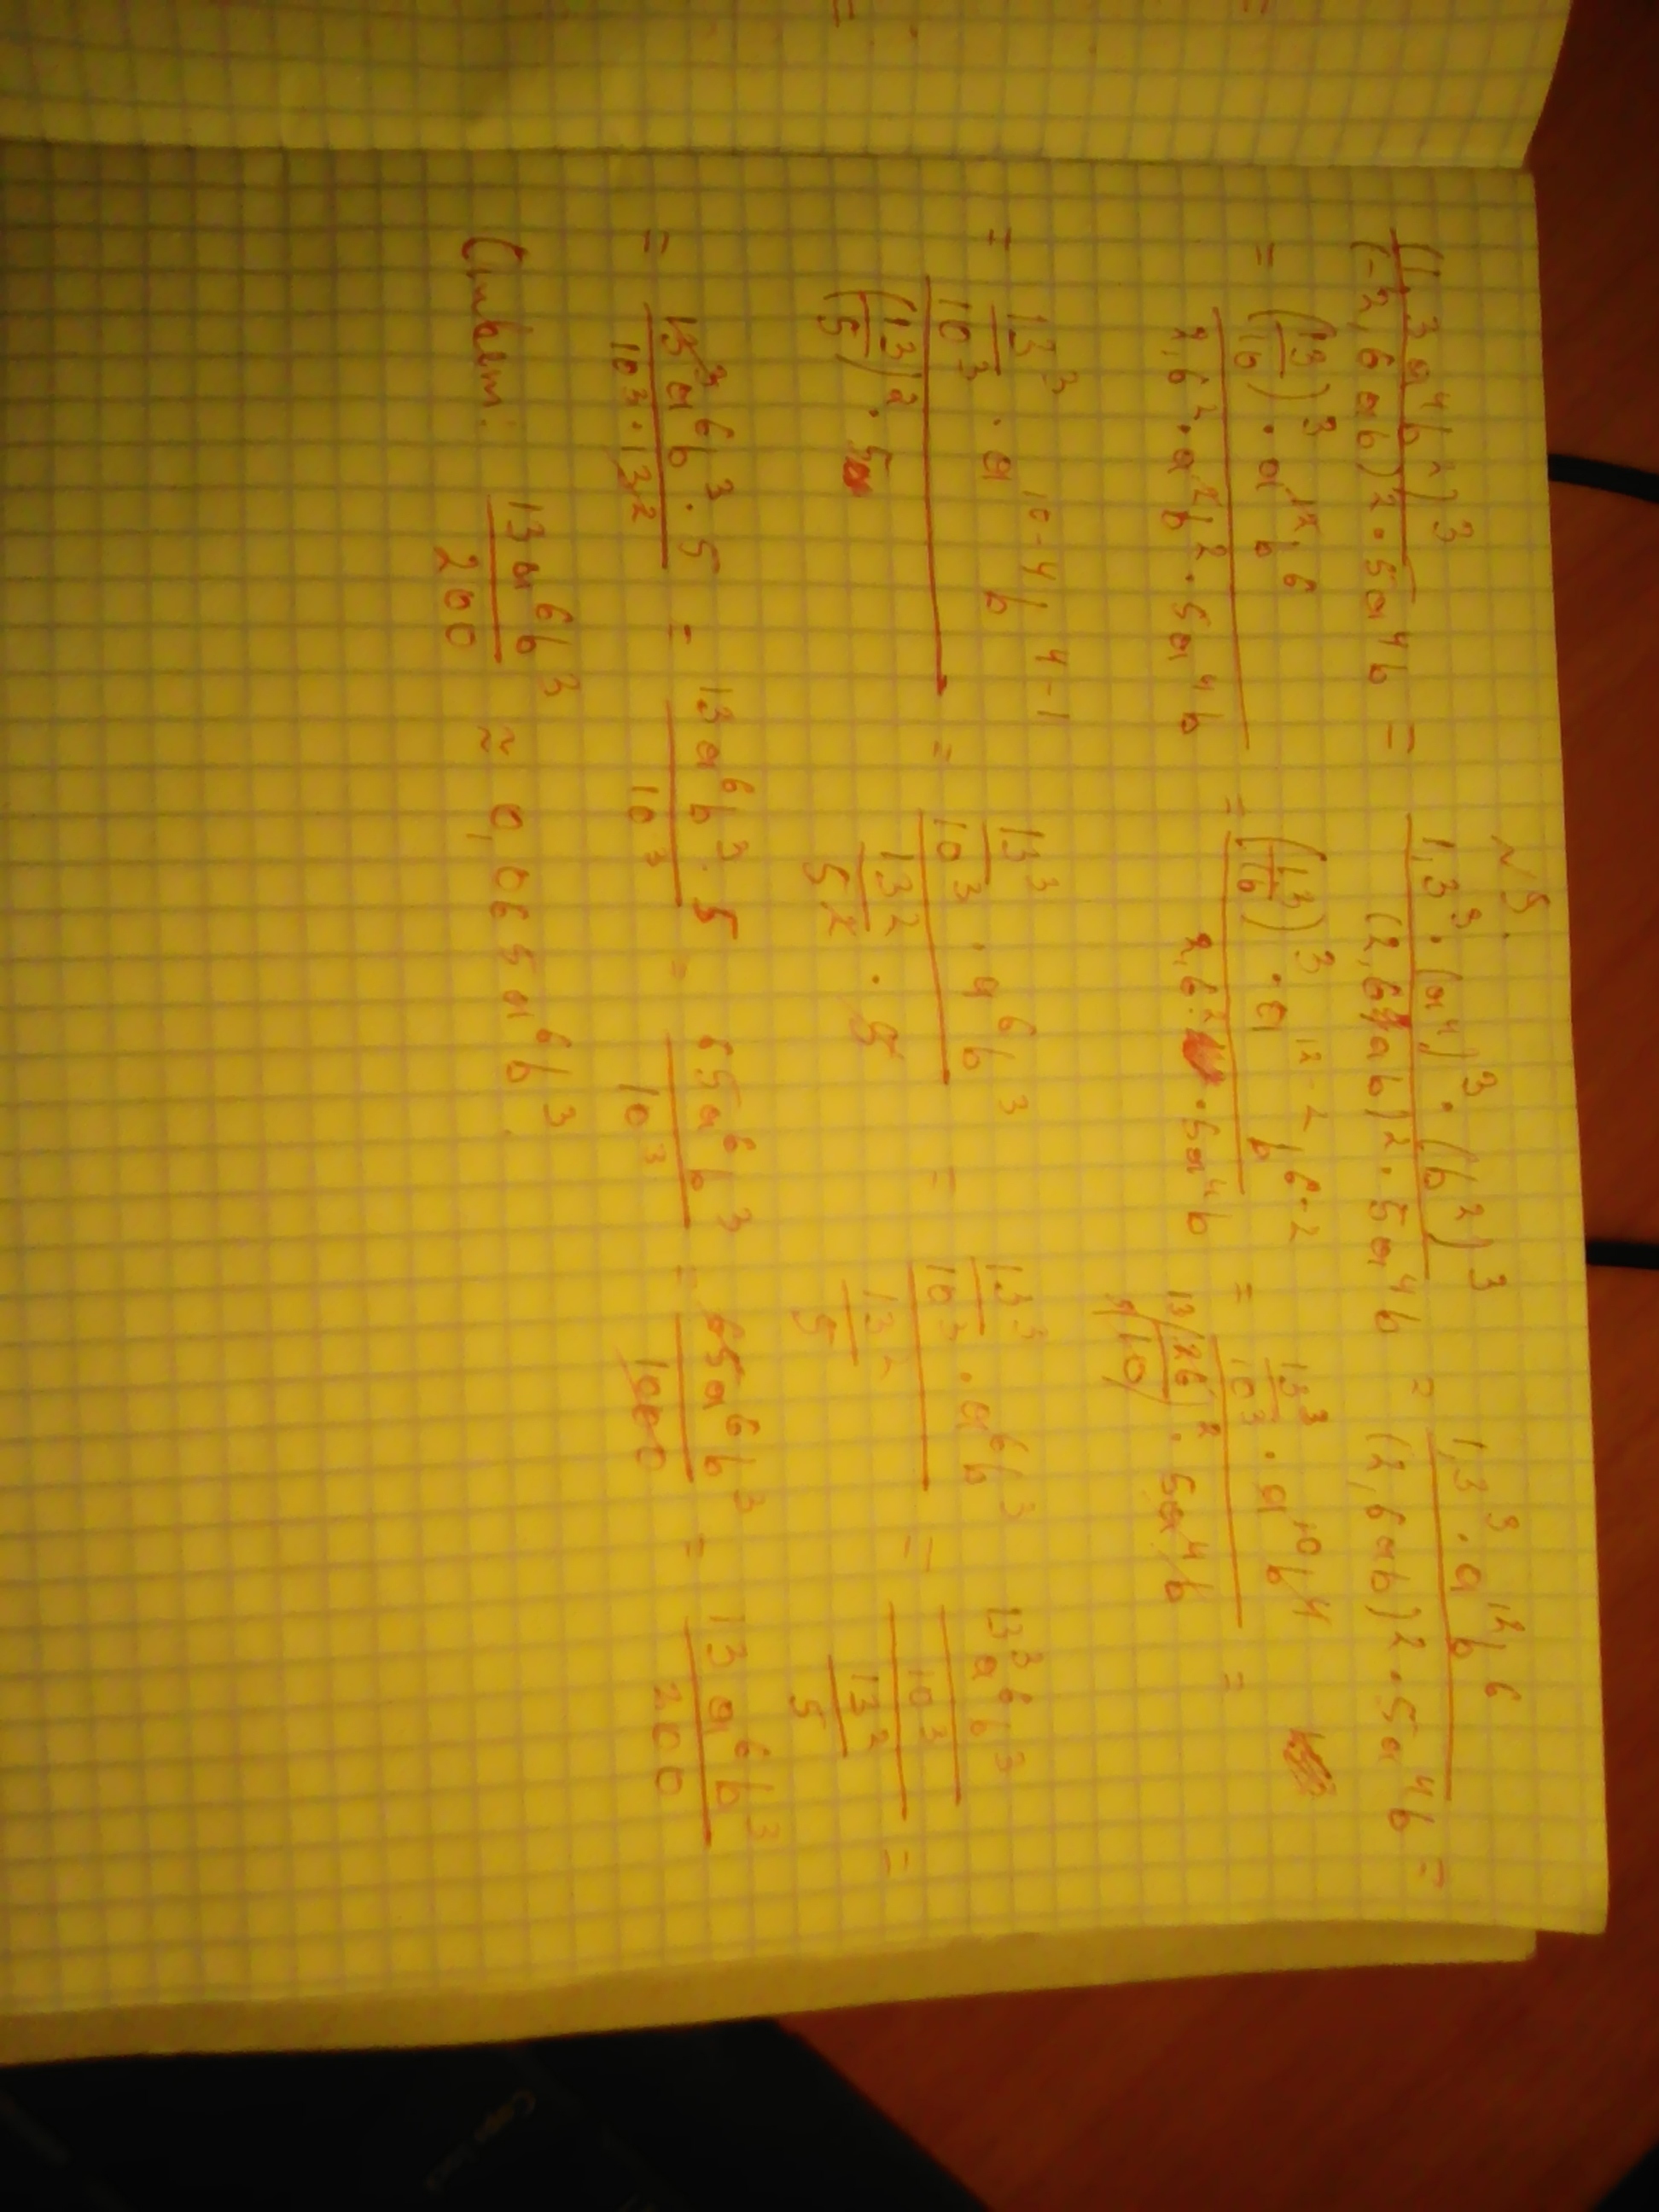 N 9.
(1,3a⁴b²)³ / (-2,6ab)² · 5a⁴b = 1,3³ · (a⁴)³ · (b²)³ / (2,6ab)² · 5a⁴b = 1,3³ · a¹²b⁶ / (2,6ab)² · 5a⁴b =
= (13/10)³ · a¹²b⁶ / 2,6² · a²b² · 5a⁴b = (13/10)³ · a¹²⁻²b⁶⁻² / 2,6² · 5a⁴b = 13³/10³ · a¹⁰b⁴ / (26/10)² · 5a⁴b =
= 13³/10³ · a¹⁰⁻⁴b⁴⁻¹ / (13/5)² · 5 = 13³/10³ · a⁶b³ / 13²/5² · 5 = 13³/10³ · a⁶b³ / 13²/5 = 13³a⁶b³/10³ / 13²/5 =
= 13³a⁶b³ · 5 / 10³ · 13² = 13a⁶b³ · 5 / 10³ = 65a⁶b³ / 10³ = 65a⁶b³ / 1000 = 13a⁶b³ / 200
Ответ: 13a⁶b³ / 200 ≈ 0,065a⁶b³.
Caps Lock